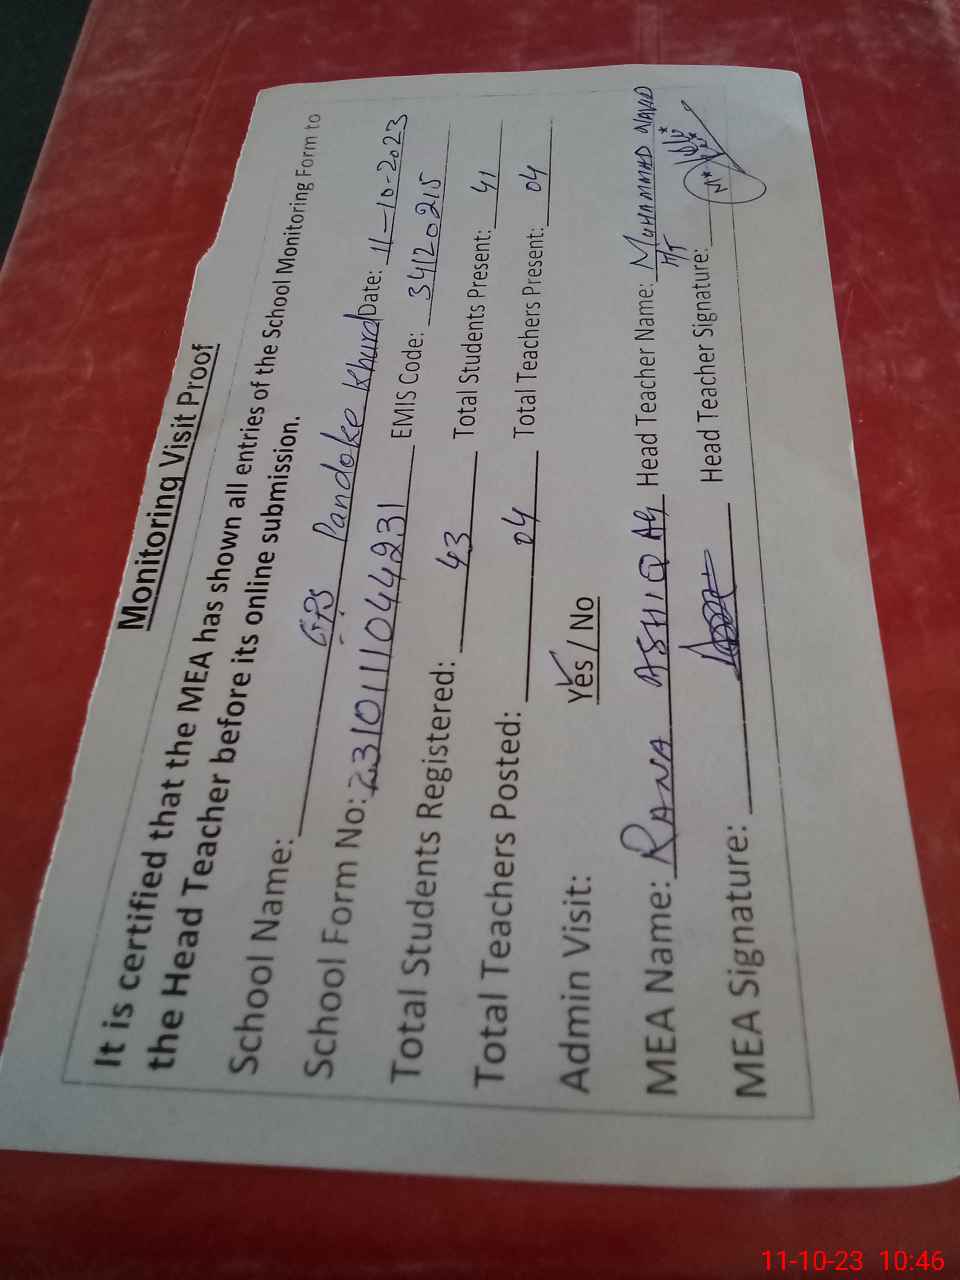 Monitoring Visit Proof
It is certified that the MEA has shown all entries of the School Monitoring Form to
the Head Teacher before its online submission.
School Name: GPS Pandoke Khurd Date: 11-10-2023
School Form No: 2310111044231 EMIS Code: 34120215
Total Students Registered: 43 Total Students Present: 41
Total Teachers Posted: 04 Total Teachers Present: 04
Admin Visit: Yes / No
MEA Name: RANA ASHIQ Ali Head Teacher Name: MUHAMMAD NAVID
H/T
MEA Signature: Head Teacher Signature:
11-10-23 10:46